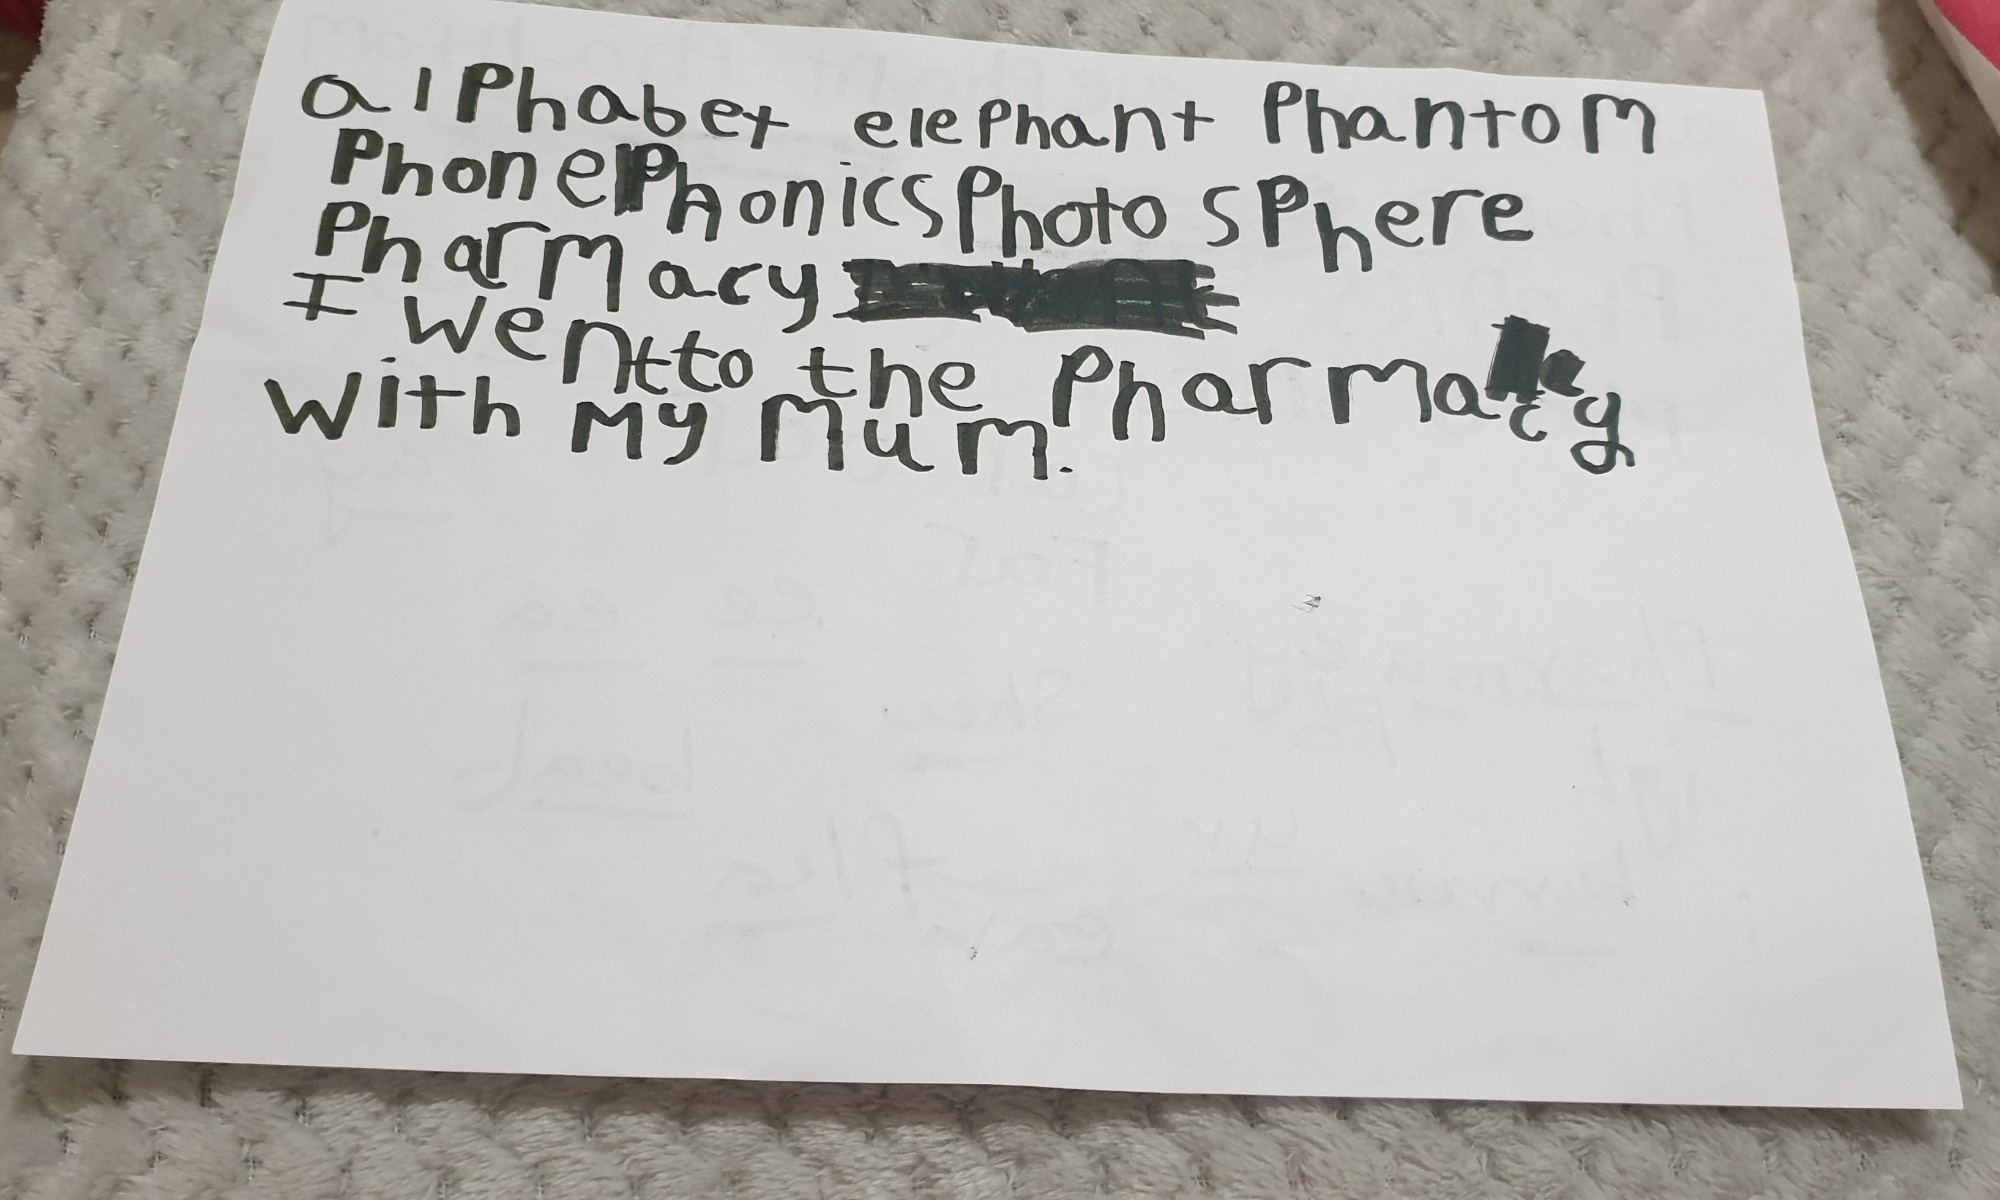 alphabet elephant phantom
Phone Phonics Photo sphere
Pharmacy
I went to the Pharmacy
with my mum.